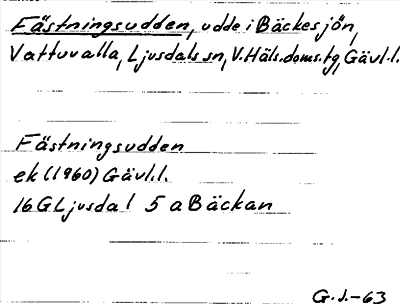 Fästningsudden, udde i Bäckesjön,
Vattuvalla, Ljusdals sn, V.Häls.doms.tg, Gävl.l.
Fästningsudden
ek (1960) Gävl.l.
16G Ljusdal 5 a Bäckan
G.J.-63